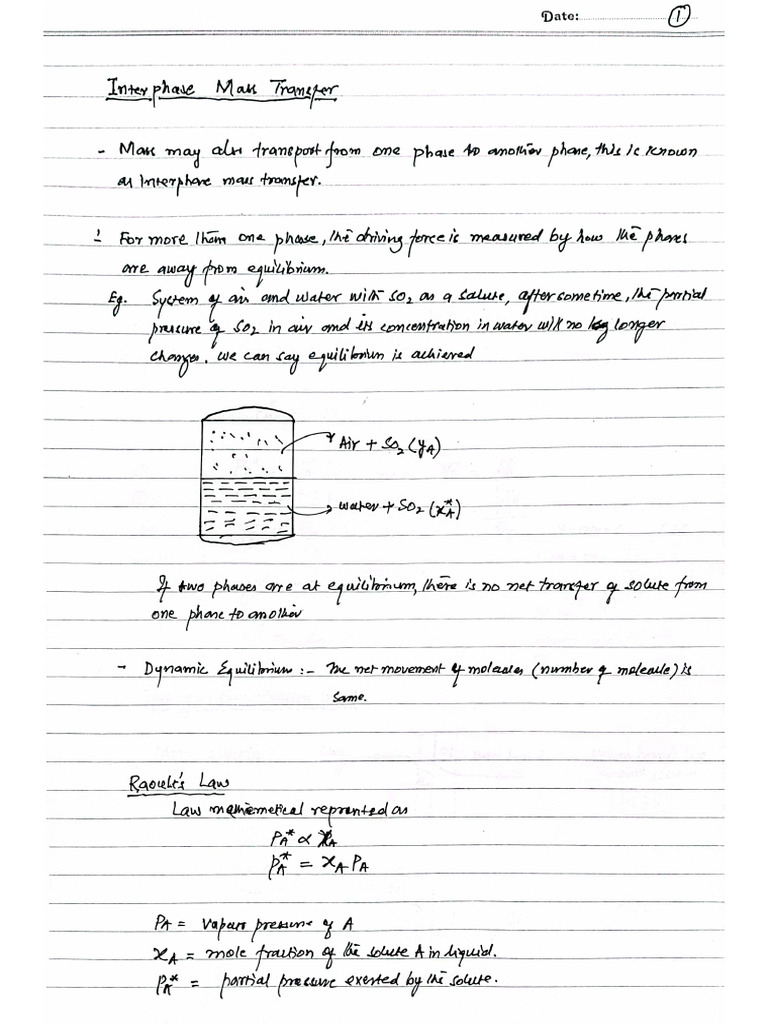 Date: 1
Interphase Mass Transfer
- Mass may also transport from one phase to another phase, this is known
as Interphase mass transfer.
- For more than one phase, the driving force is measured by how the phases
are away from equilibrium.
Eg. System of air and water with SO2 as a solute, after sometime, the partial
pressure of SO2 in air and its concentration in water will no longer
changes. we can say equilibrium is achieved
Air + SO2 (yA)
water + SO2 (x*A)
If two phases are at equilibrium, there is no net transfer of solute from
one phase to another
- Dynamic Equilibrium :- The net movement of molecules (number of molecule) is
same.
Raoult's Law
Law mathemetical reprented as
PA* ∝ xA
PA* = xA PA
PA = vapour pressure of A
xA = mole fraction of the solute A in liquid.
PA* = partial pressure exerted by the solute.